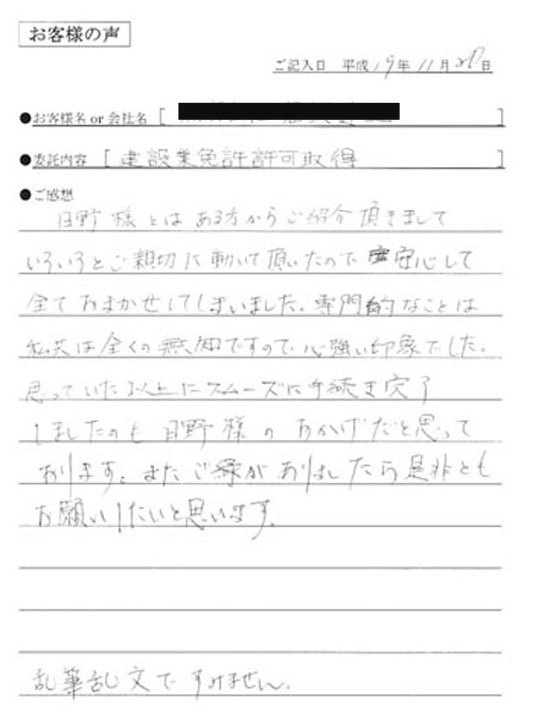 お客様の声
ご記入日 平成19年11月20日
●お客様名 or 会社名 [ ]
●委託内容 [ 建設業免許許可取得 ]
●ご感想
日野様とはある方からご紹介頂きまして
いろいろとご親切に動いて頂いたので安心して
全ておまかせしてしまいました。専門的なことは
私共は全くの無知ですので心強い印象でした。
思っていた以上にスムーズに手続き完了
しましたのも日野様のおかげだと思って
おります。またご縁がありましたら是非とも
お願いしたいと思います。
乱筆乱文ですみません。